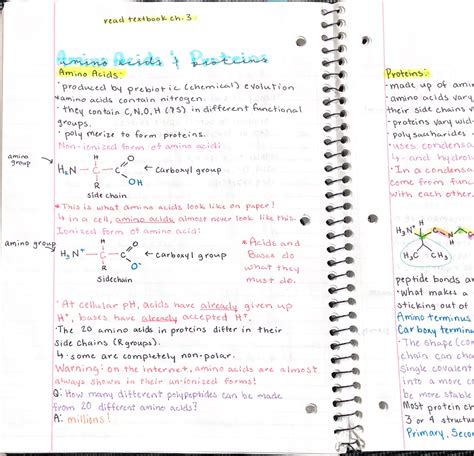 read textbook ch. 3
Amino Acids & Proteins
Amino Acids:
• produced by prebiotic (chemical) evolution
* amino acids contain nitrogen.
• they contain C, N, O, H (S) in different functional
groups.
• polymerize to form proteins.
Non-ionized form of amino acid:
amino
group
H₂N – C – C
H
O
OH
R
← Carboxyl group
side chain
* This is what amino acids look like on paper!
↳ in a cell, amino acids almost never look like this.
Ionized form of amino acid:
amino group
H₃N⁺ – C – C
H
O
O⁻
R
← carboxyl group
sidechain
* Acids and
Bases do
what they
must do.
* At cellular pH, acids have already given up
H⁺, bases have already accepted H⁺.
• The 20 amino acids in proteins differ in their
side chains (R groups).
↳ some are completely non-polar.
Warning: on the internet, amino acids are almost
always shown in their un-ionized forms!
Q: How many different polypeptides can be made
from 20 different amino acids?
A: millions!
Proteins:
• made up of amin
• amino acids vary
their side chains v
• proteins vary wid
polysaccharides
• uses condensa
↳ and hydrol
• In a condensa
come from func
with each other.
H₃N⁺ – C – C – N
H
O
H
CH
H₃C CH₃
peptide bonds a
• What makes a
sticking out of
Amino terminus
Carboxy terminu
• The shape (con
chain can cha
single covalent
into a more c
be more stable
Most protein ch
3 or 4 structu
Primary, Secon